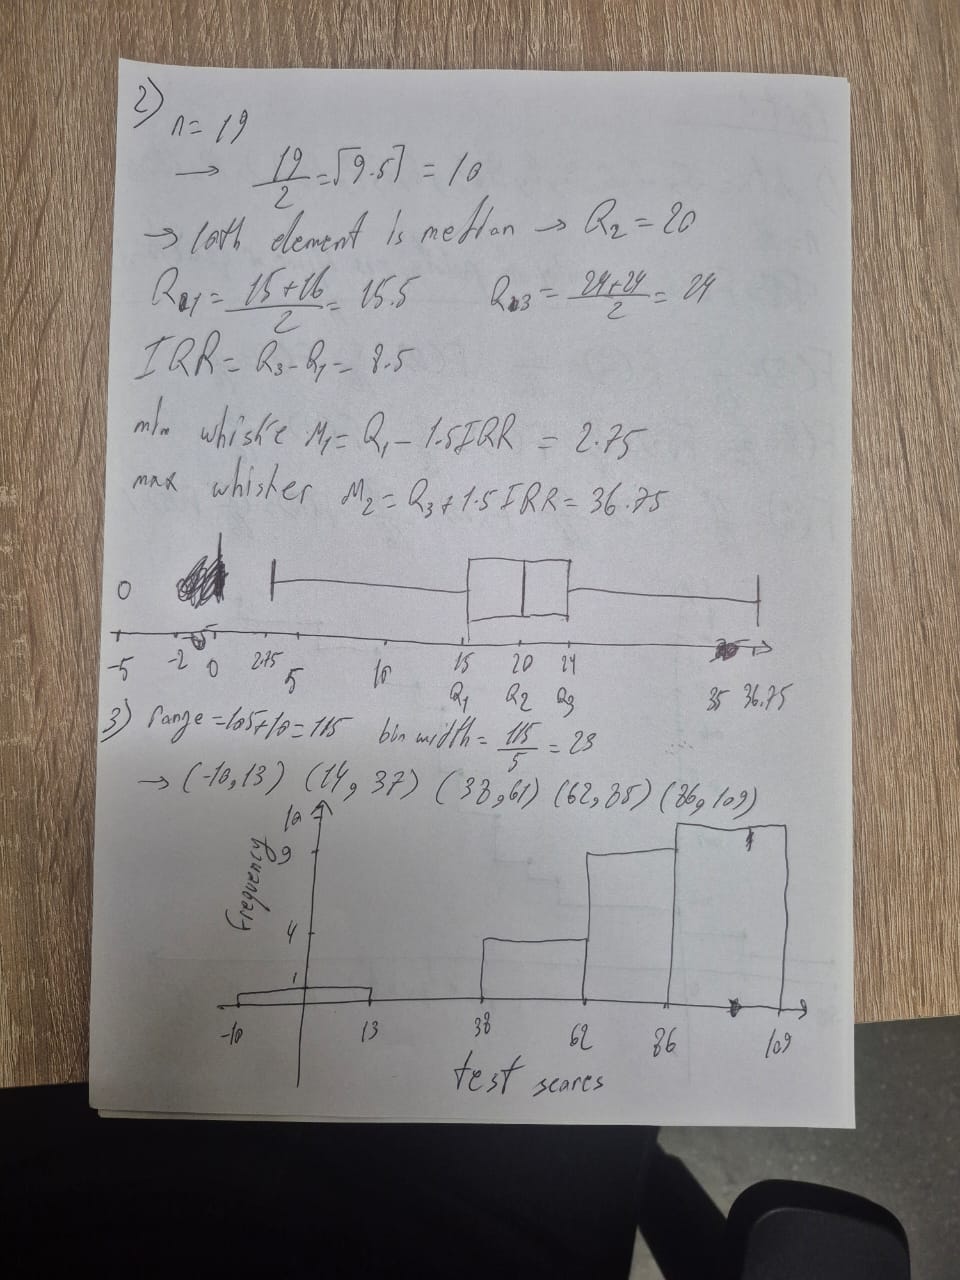 2)
n = 19
→ 19/2 = ⌈9.5⌉ = 10
→ 10th element is median → Q2 = 20
Q1 = (15+16)/2 = 15.5 Q3 = (24+24)/2 = 24
IQR = Q3 - Q1 = 8.5
min whiske M1 = Q1 - 1.5IQR = 2.75
max whisker M2 = Q3 + 1.5IQR = 36.75
0
-5 -2 0 2.75 5 10 15 20 24 35 36.75
Q1 Q2 Q3
3) range = 105+10 = 115 bin width = 115/5 = 23
→ (-10, 13) (14, 37) (38, 61) (62, 85) (86, 109)
10
9
4
1
Frequency
-10 13 38 62 86 109
test scores